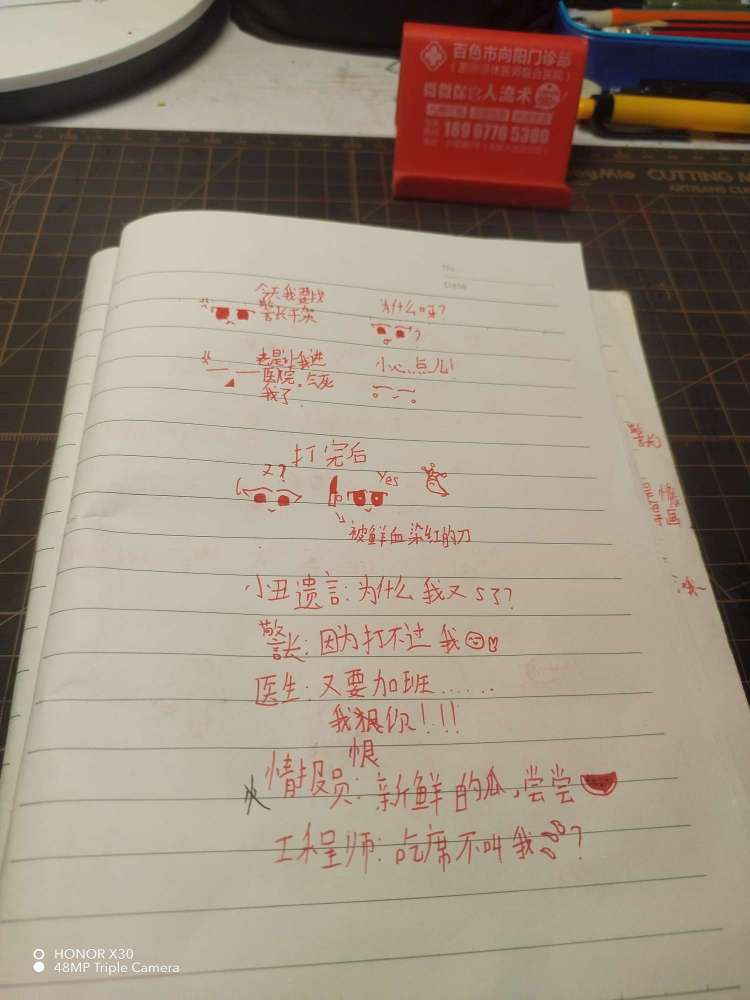 百色市向阳门诊部
微微保宫人流术
18907765309
CUTTING M
ARTISANS CLU
No
Date
今天我要找
警长干架
为什么呀?
?
老是让我进
医院。气死
我了
小心点儿!
打完后
又?
Yes
被鲜血染红的刀
小丑遗言:为什么我又S了?
警长:因为打不过我
医生:又要加班......
我狠你!!!
恨
情报员:新鲜的瓜,尝尝
工程师:吃席不叫我?
警长
HONOR X30
48MP Triple Camera